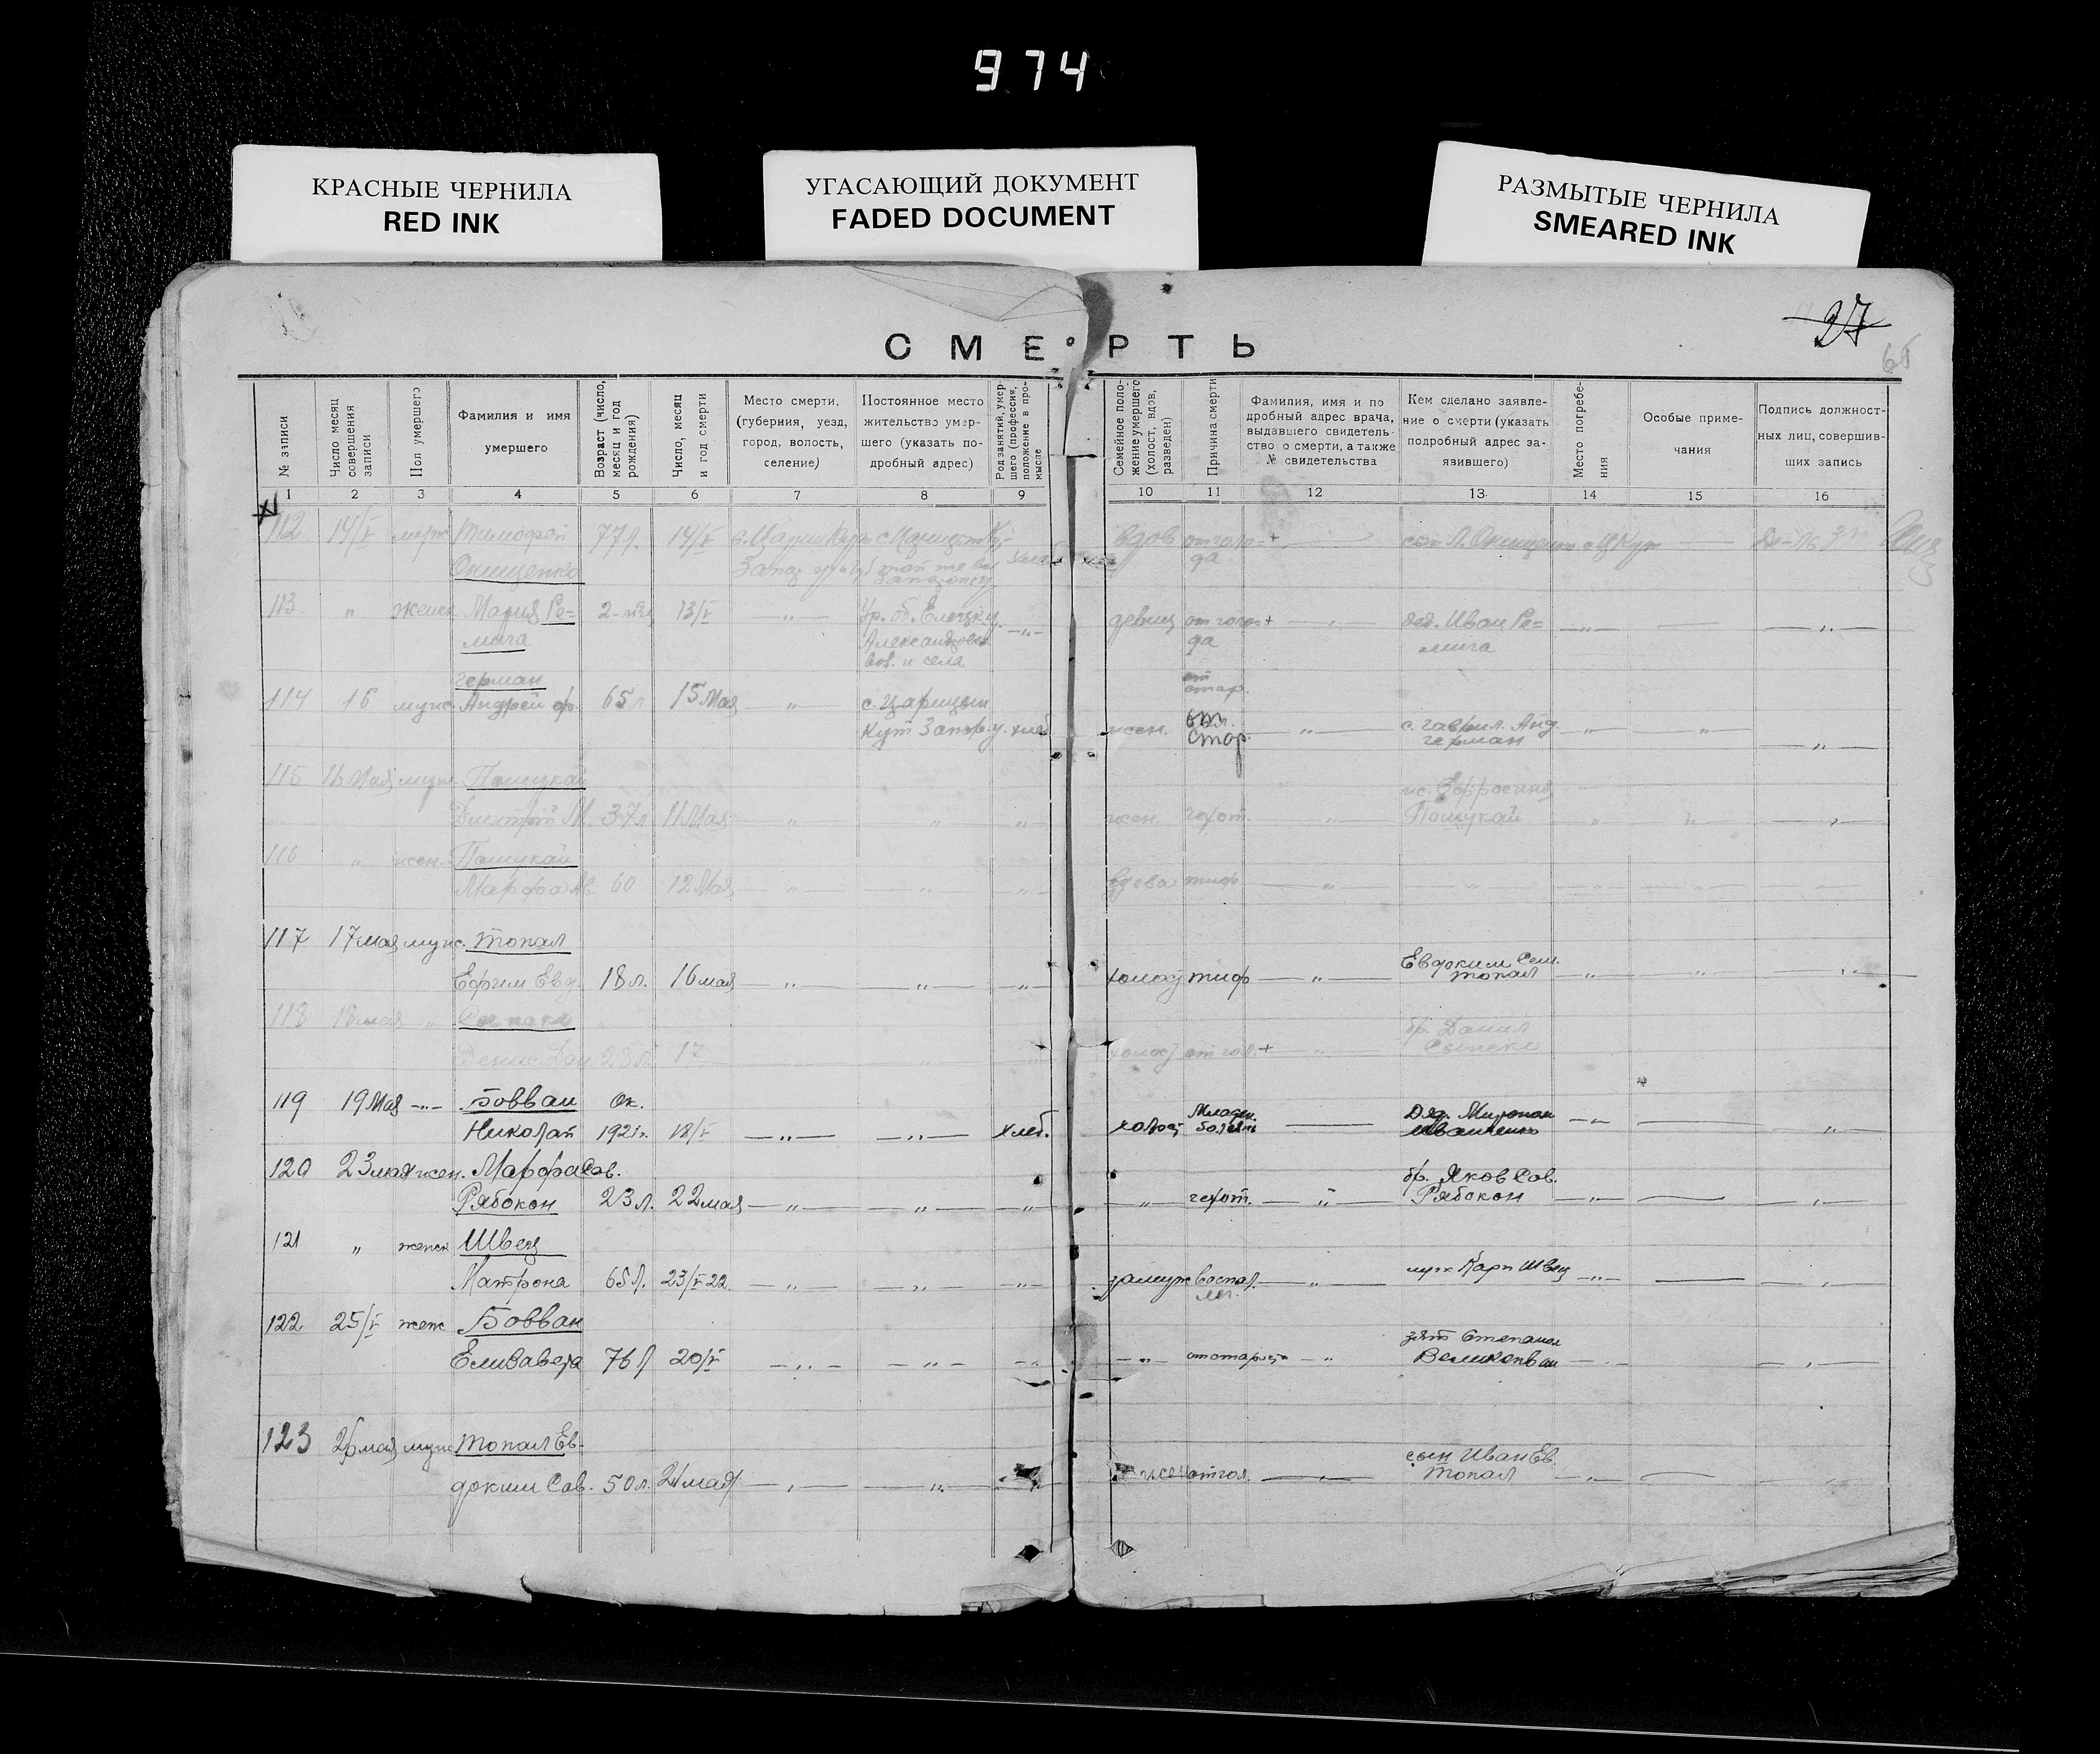 974
КРАСНЫЕ ЧЕРНИЛА
RED INK
УГАСАЮЩИЙ ДОКУМЕНТ
FADED DOCUMENT
РАЗМЫТЫЕ ЧЕРНИЛА
SMEARED INK
27
СМЕРТЬ
№ записи
Число месяц совершения записи
Пол умершего
Фамилия и имя умершего
Возраст (число, месяц и год рождения)
Число, месяц и год смерти
Место смерти, (губерния, уезд, город, волость, селение)
Постоянное место жительство умершего (указать подробный адрес)
Род занятий, умершего (профессия, положение в промысле
Семейное положение умершего (холост, вдов, разведен)
Причина смерти
Фамилия, имя и подробный адрес врача, выдавшего свидетельство о смерти, а также № свидетельства
Кем сделано заявление о смерти (указать подробный адрес заявившего)
Место погребения
Особые примечания
Подпись должностных лиц, совершивших запись
1 2 3 4 5 6 7 8 9 10 11 12 13 14 15 16
112 14/V муж Тимофей 77 л. 14/V вдов от голо=
Онищенко да
113 " женск Мария Ре= 2 13/V девиц от голо+ дед. Иван Ре=
мига да мига
герман
114 16 мужс. Андрей ф. 65 л 15 Мая " с. Царицын
Кут Запор. у. хлеб жен. от стар. с. гаврил. Анд. герман
115 16 Мая мужс Пошукай ж. Ефросиния
Дмитрий М. 37 л 11 Мая " " " жен. чехот. " Пошукай
116 " жен. Пошукай
Марфа Ив. 60 12 Мая " " " вдова тиф "
117 17 мая мужс. Топал Евдоким Сем.
Ефим Евд. 18 л. 16 мая " " " холост тиф " Топал
118 18 мая " бр. Данил
Денис. Дан. 28 л. 17 холост от гол.+
119 19 Мая " Бовван ок. Младен. Дяд.
Николай 1921 г. 18/V " " хлеб. холост болезнь
120 23 мая жен. Марфа Сав. бр. Яков Сав.
Рябокон 23 л. 22 мая " " " " чехот. " Рябокон
121 " женск Швец муж Карп Швец
Матрона 65 л. 23/V 22. " " " замуж воспал. лег. "
122 25/V жен Бовван зят Степанов
Елизавета 76 л 20/V " " " " от старост "
123 26 мая мужс Топал Ев- сын Иван Ев.
доким Сав. 50 л. 21 мая " " жен от гол. " Топал